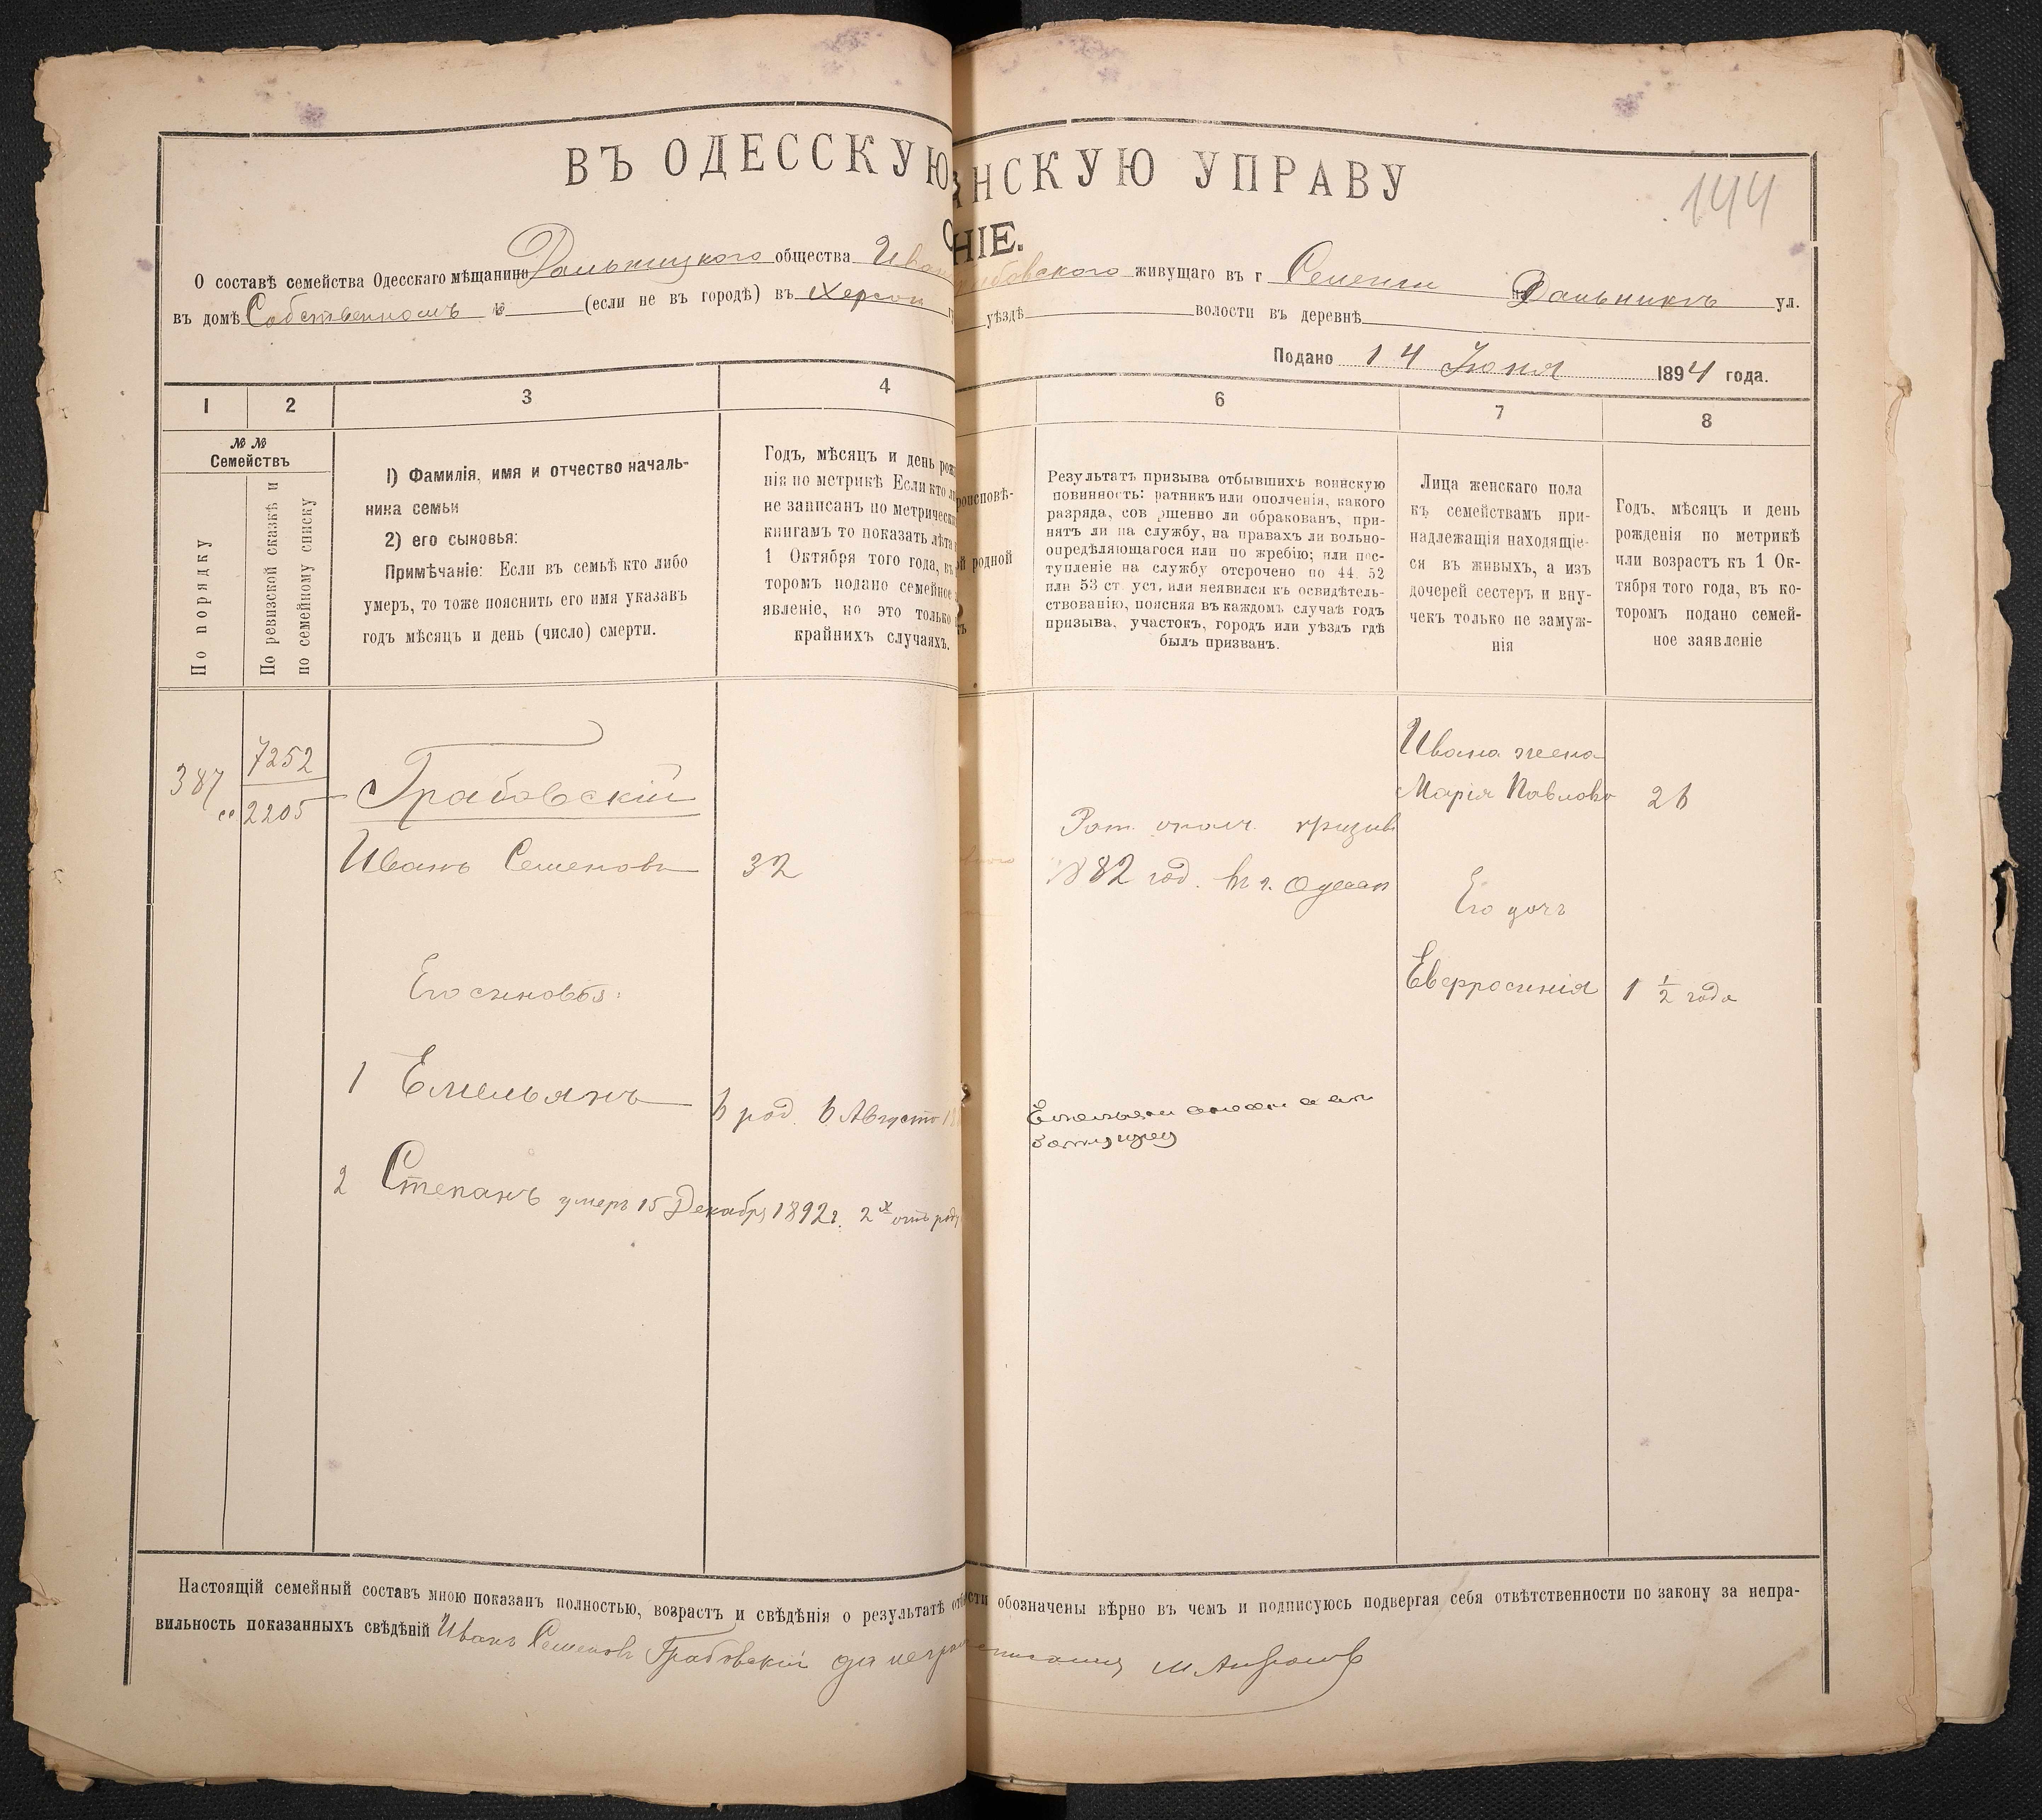 144
ВЪ ОДЕССКУЮ АНСКУЮ УПРАВУ
НІЕ.
О составѣ семейства Одесскаго мѣщанина Дальницкого общества Иван бовского живущаго въ г Селенги Дальникъ ул.
въ домѣ Собственномъ № (если не въ городѣ) въ Херсон уѣздѣ волости въ деревнѣ
Подано 14 Іюня 1894 года.
1 2 3 4 6 7 8
№ №
Семействъ
По порядку
По ревизской сказкѣ и
по семейному списку
1) Фамилія, имя и отчество началь-
ника семьи
2) его сыновья:
Примѣчаніе: Если въ семьѣ кто либо
умеръ, то тоже пояснить его имя указавъ
годъ мѣсяцъ и день (число) смерти.
Годъ, мѣсяцъ и день рож
нія по метрикѣ Если кто ли
не записанъ по метрическ
книгамъ то показать лѣта
1 Октября того года, въ
торомъ подано семейное
явленіе, но это только
крайнихъ случаяхъ.
роисповѣ-
й родной
Результатъ призыва отбывшихъ воинскую
повинность: ратникъ или ополченія, какого
разряда, сов ршенно ли обракованъ, при-
нятъ ли на службу, на правахъ ли вольно-
опредѣляющагося или по жребію; или пос-
тупленіе на службу отсрочено по 44. 52
или 53 ст уст, или неявился къ освидѣтель-
ствованію, поясняя въ каждомъ случаѣ годъ
призыва, участокъ, городъ или уѣздъ гдѣ
былъ призванъ.
Лица женскаго пола
къ семействамъ при-
надлежащія находящіе-
ся въ живыхъ, а изъ
дочерей сестеръ и вну-
чекъ только не замуж-
нія
Годъ, мѣсяцъ и день
рожденія по метрикѣ
или возрастъ къ 1 Ок-
тября того года, въ ко-
торомъ подано семей-
ное заявленіе
387
7252
2205
Грабовскій
Иванъ Семеновъ 32
Рат. ополч. призыв
1882 год. въ г. Одессѣ
Ивана жена
Марія Павлова 26
Его дочь
Евфросинія 1 1/2 года
Его сыновья:
1 Емельянъ 6 род. 6 Августа 18
2 Степанъ умеръ 15 Декабря 1892 г. 2х отъ роду
Настоящій семейный составъ мною показанъ полностью, возрастъ и свѣдѣнія о результатѣ от ости обозначены вѣрно въ чемъ и подписуюсь подвергая себя отвѣтственности по закону за непра-
вильность показанныхъ свѣдѣній Иванъ Семеновъ Грабовскій